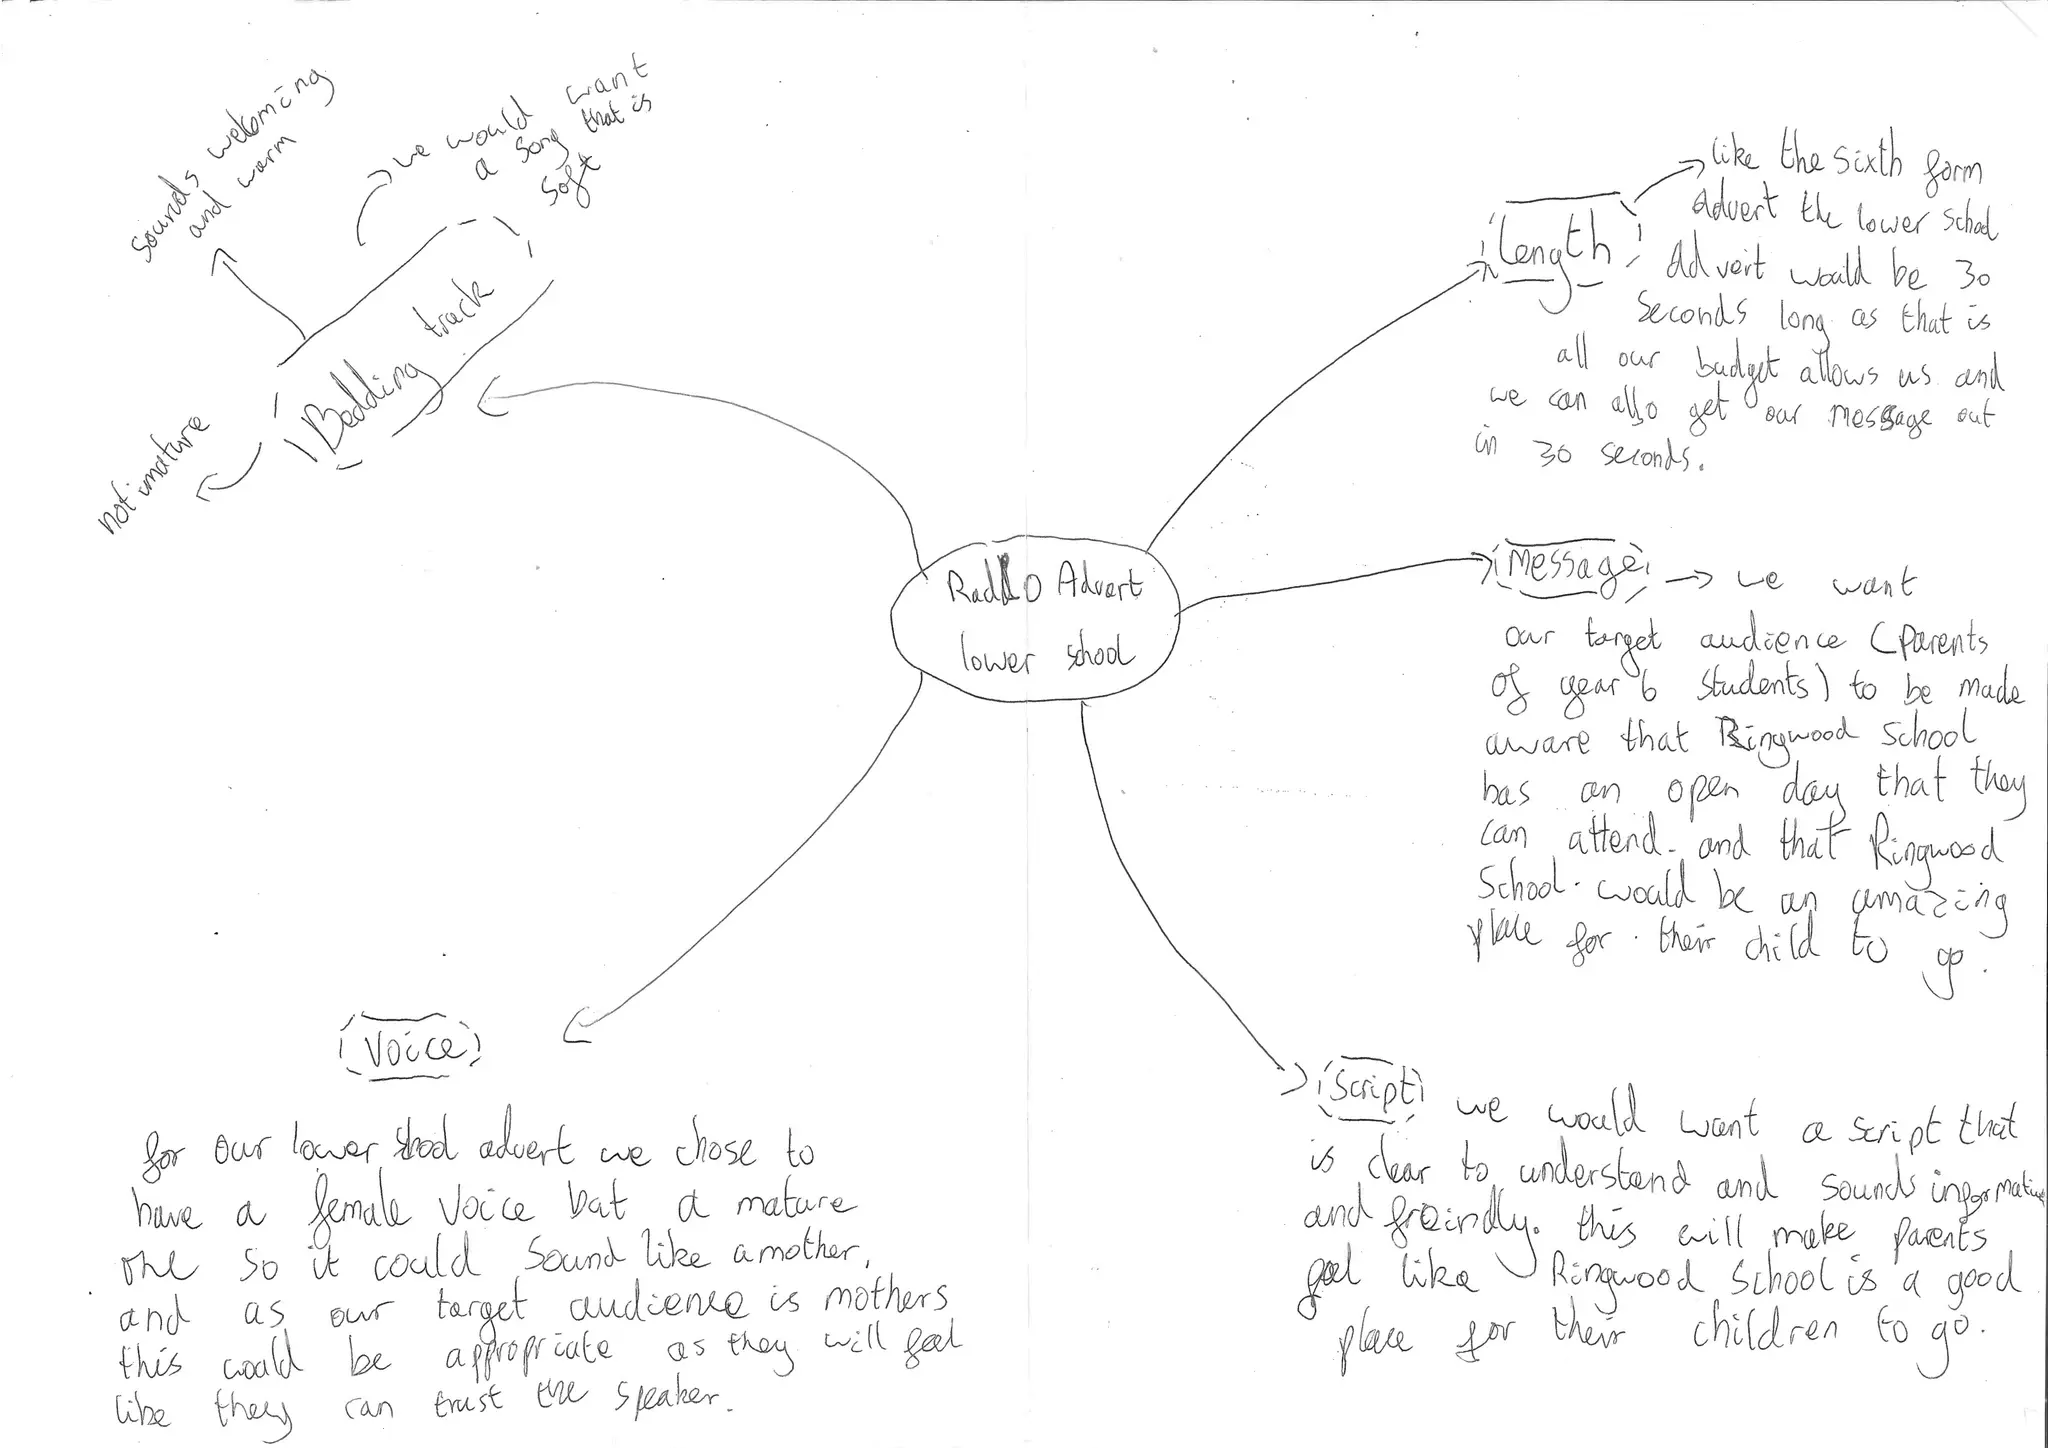 Radio Advert
lower school
Bedding track
we would want
a song that is
soft
sounds welcoming
and warm
not imature
length
like the sixth form
Advert the lower school
Advert would be 30
seconds long as that is
all our budget allows us and
we can also get our message out
in 30 seconds.
Message
we want
our target audience (parents
of year 6 students) to be made
aware that Ringwood school
has an open day that they
can attend. and that Ringwood
School. would be an amazing
place for their child to
go.
Script
we would want a script that
is clear to understand and sounds informative
and freindly. this will make parents
feel like Ringwood School is a good
place for their children to go.
Voice
for our lower school advert we chose to
have a female voice but a mature
one so it could sound like a mother,
and as our target audience is mothers
this would be appropriate as they will feel
like they can trust the speaker.